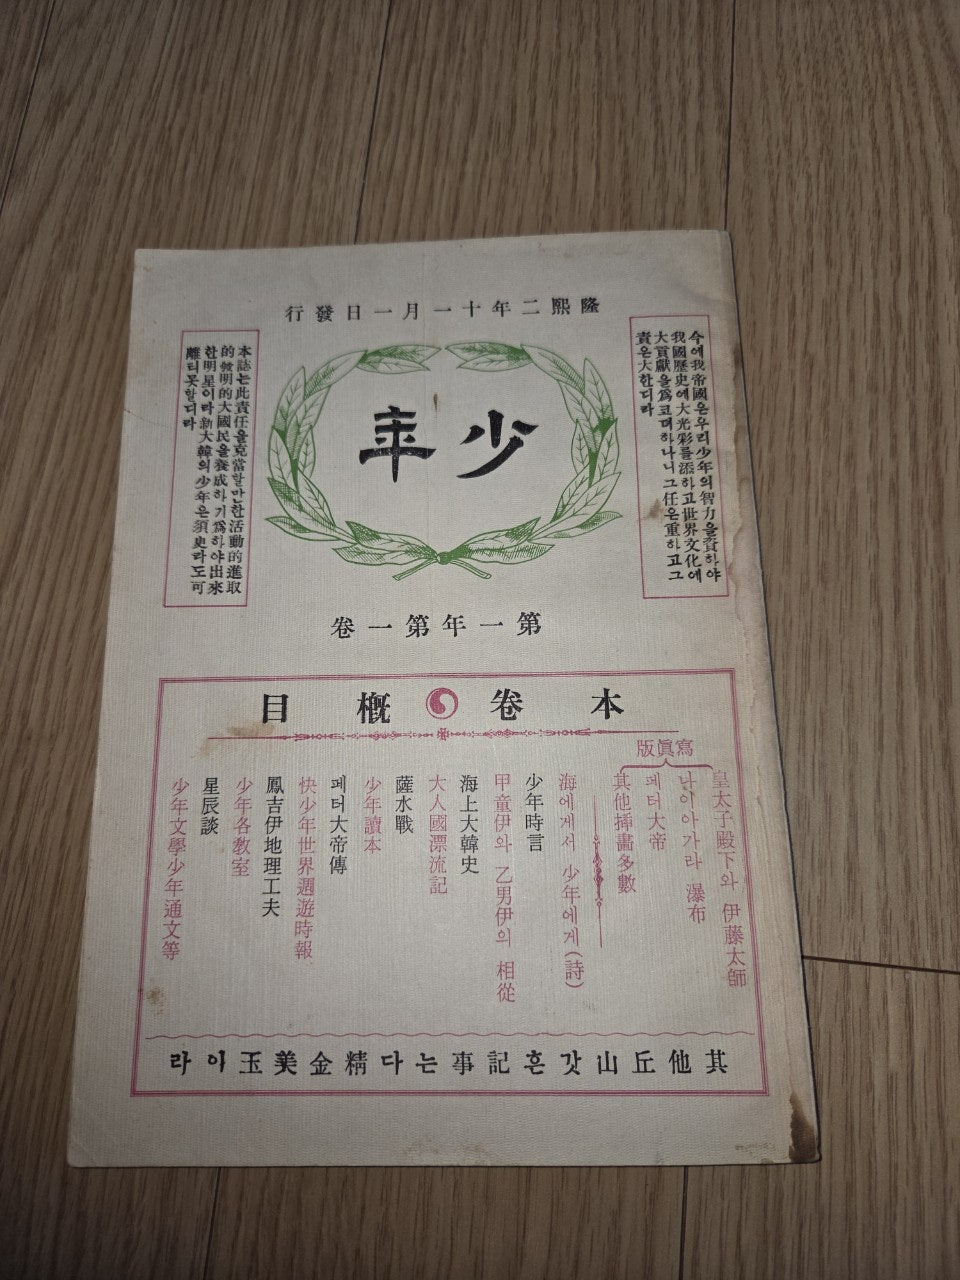 隆熙二年十一月一日發行
少年
今에我帝國은우리少年의智力을資하야
我國歷史에大光彩를添하고世界文化에
大貢獻을爲코뎌하나니그任은重하고그
責은大한디라
本誌는此責任을克當할만한活動的進取
的發明的大國民을養成하기爲하야出來
한明星이라新大韓의少年은須臾라도可
離티못할디라
第一年第一卷
本卷概目
寫眞版
皇太子殿下와 伊藤太師
나이아가라 瀑布
페터大帝
其他揷畵多數
海에게서 少年에게(詩)
少年時言
甲童伊와 乙男伊의 相從
海上大韓史
大人國漂流記
薩水戰
少年讀本
페터大帝傳
快少年世界週遊時報
鳳吉伊地理工夫
少年各敎室
星辰談
少年文學少年通文等
其他丘山갓흔記事는다精金美玉이라